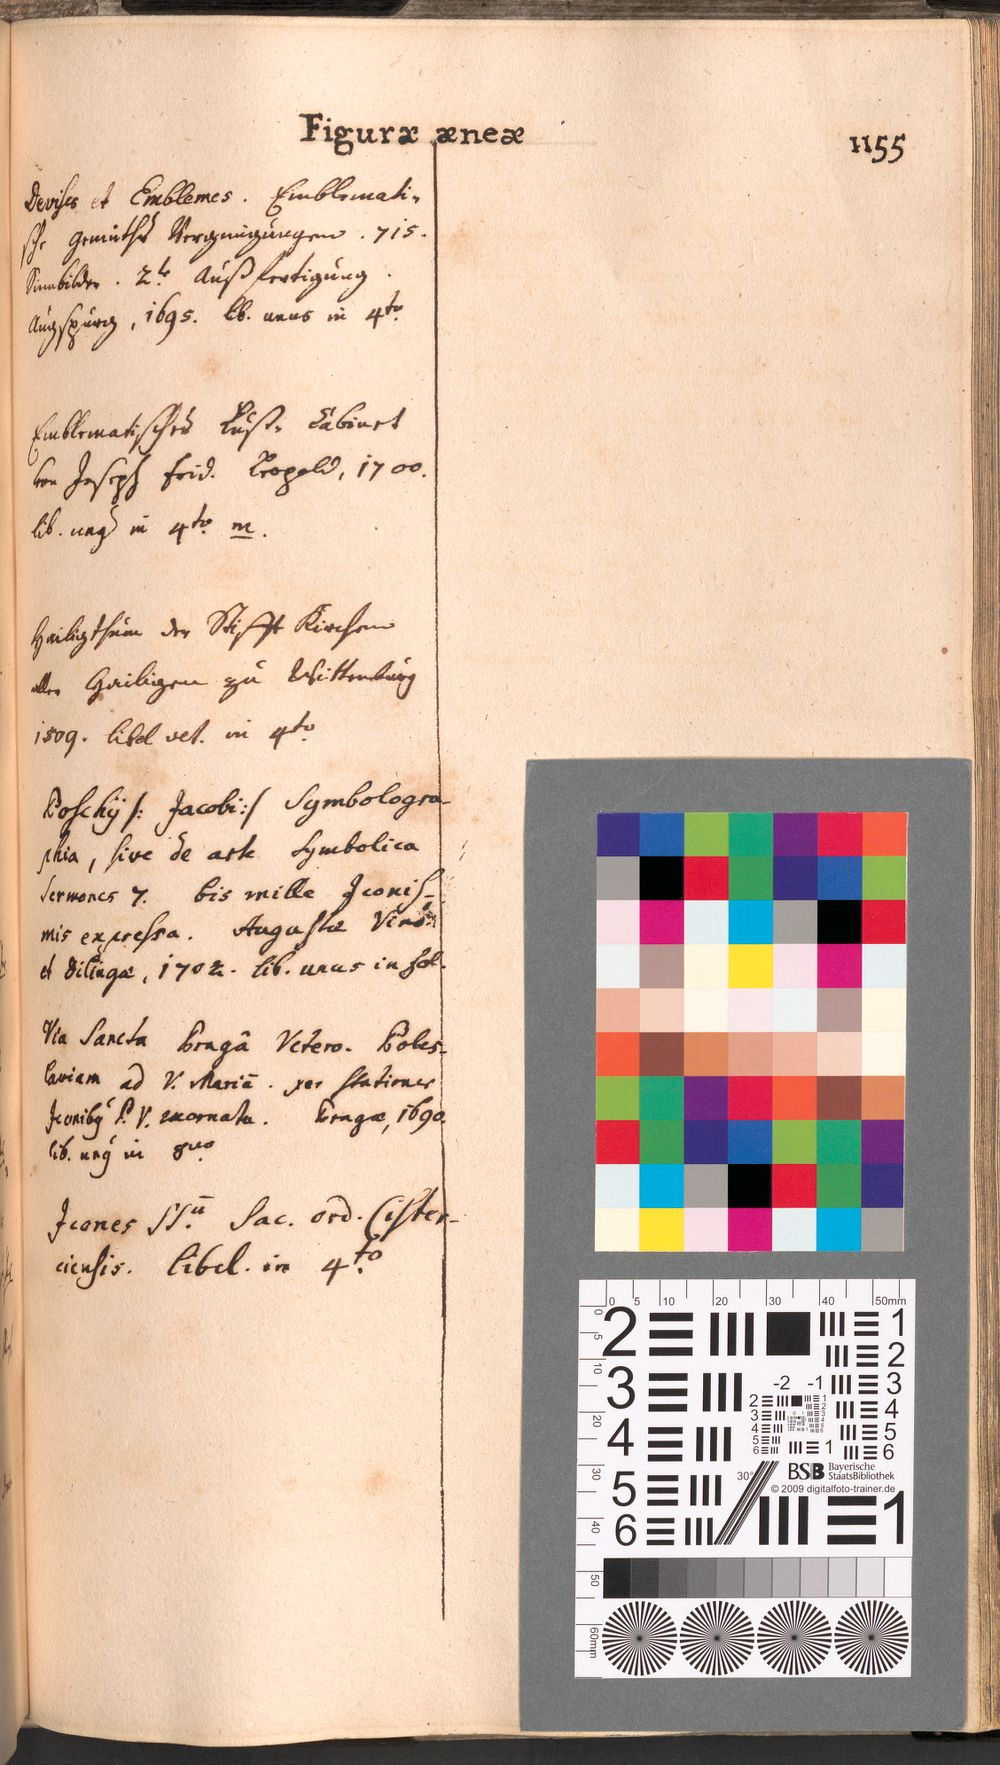 Figuræ æneæ
1155
Devises et Emblemes. Emblemati-
sche Gemüths Vergnügungen. 715.
Sinnbilder. 2te Außfertigung.
Augspurg, 1695. lib. unus in 4to.
Emblematisches Lust-Cabinet
von Joseph Frid. Leopold, 1700.
lib. unus in 4to. m.
Heiligthum der Stifft Kirchen
aller Heiligen zu Wittenburg
1509. libel vet. in 4to.
Boschij /: Jacobi:/ Symbologra-
phia, sive de arte Symbolica
sermones 7. bis mille Iconis-
mis expressa. Augustæ Vind:
et Dilingæ, 1702. lib. unus in fol.
Via Sancta Pragâ Vetero-Boles-
laviam ad V. Mariā. per stationes
Iconibq B. V. exornata. Pragæ, 1690.
lib. unq in 8vo.
Icones SS.ū Sac. ord. Cister-
ciensis. libel. in 4to.
0 5 10 20 30 40 50mm
0 5 10 20 30 40 50 60mm
2 3 4 5 6
1 2 3 4 5 6
-2 -1
2 3 4 5 6
1
30°
BSB Bayerische
StaatsBibliothek
© 2009 digitalfoto-trainer.de
1